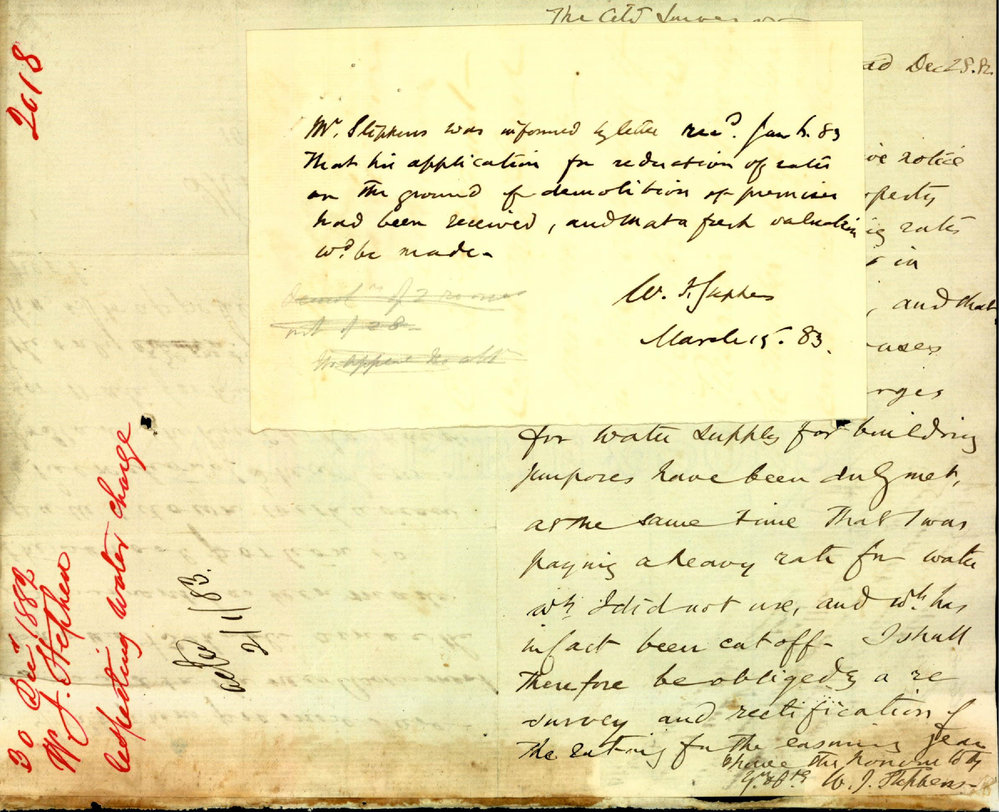 The City Surveyor
Dec 28. 82
Mr. Stephens was informed by letter recd. Jan 83
that his application for reduction of rates
on the ground of demolition of premises
had been received, and that a fresh valuation
wd. be made.
W. J. Stephens
March 15. 83.
of 2 rooms
out of 28
ive notice
operty
ing rates
in
, and that
ases
rges
for water supply for building
purposes have been duly met,
at the same time that I was
paying a heavy rate for water
wh. I did not use, and wh. has
in fact been cut off. I shall
therefore be obliged by a re
survey and rectification of
the rating for the ensuing year
I have the honour to be
W. J. Stephens
2618
30 Decr. 1882
W. J. Stephen
respecting water charge
2/1/83.